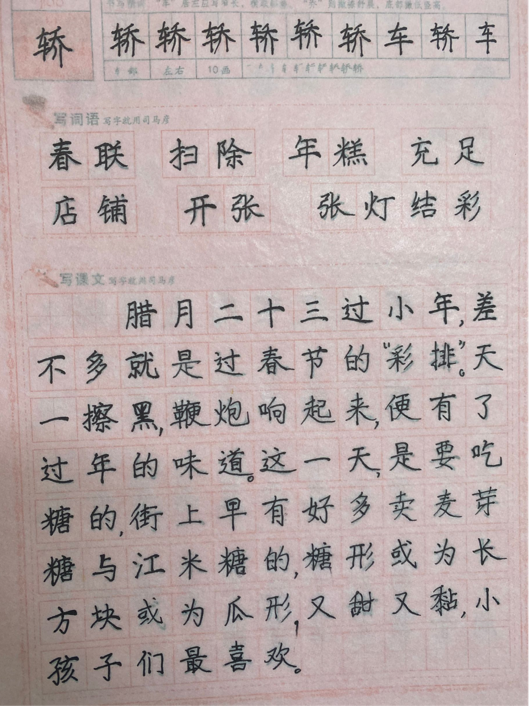 轿 轿 轿 轿 轿 轿 轿 车 轿 车
车部 左右 10画
写词语 写字教用司马彦
春联 扫除 年糕 充足
店铺 开张 张灯结彩
写课文 写字教用司马彦
腊月二十三过小年,差
不多就是过春节的“彩排”。天
一擦黑,鞭炮响起来,便有了
过年的味道。这一天,是要吃
糖的,街上早有好多卖麦芽
糖与江米糖的,糖形或为长
方块或为瓜形,又甜又黏,小
孩子们最喜欢。